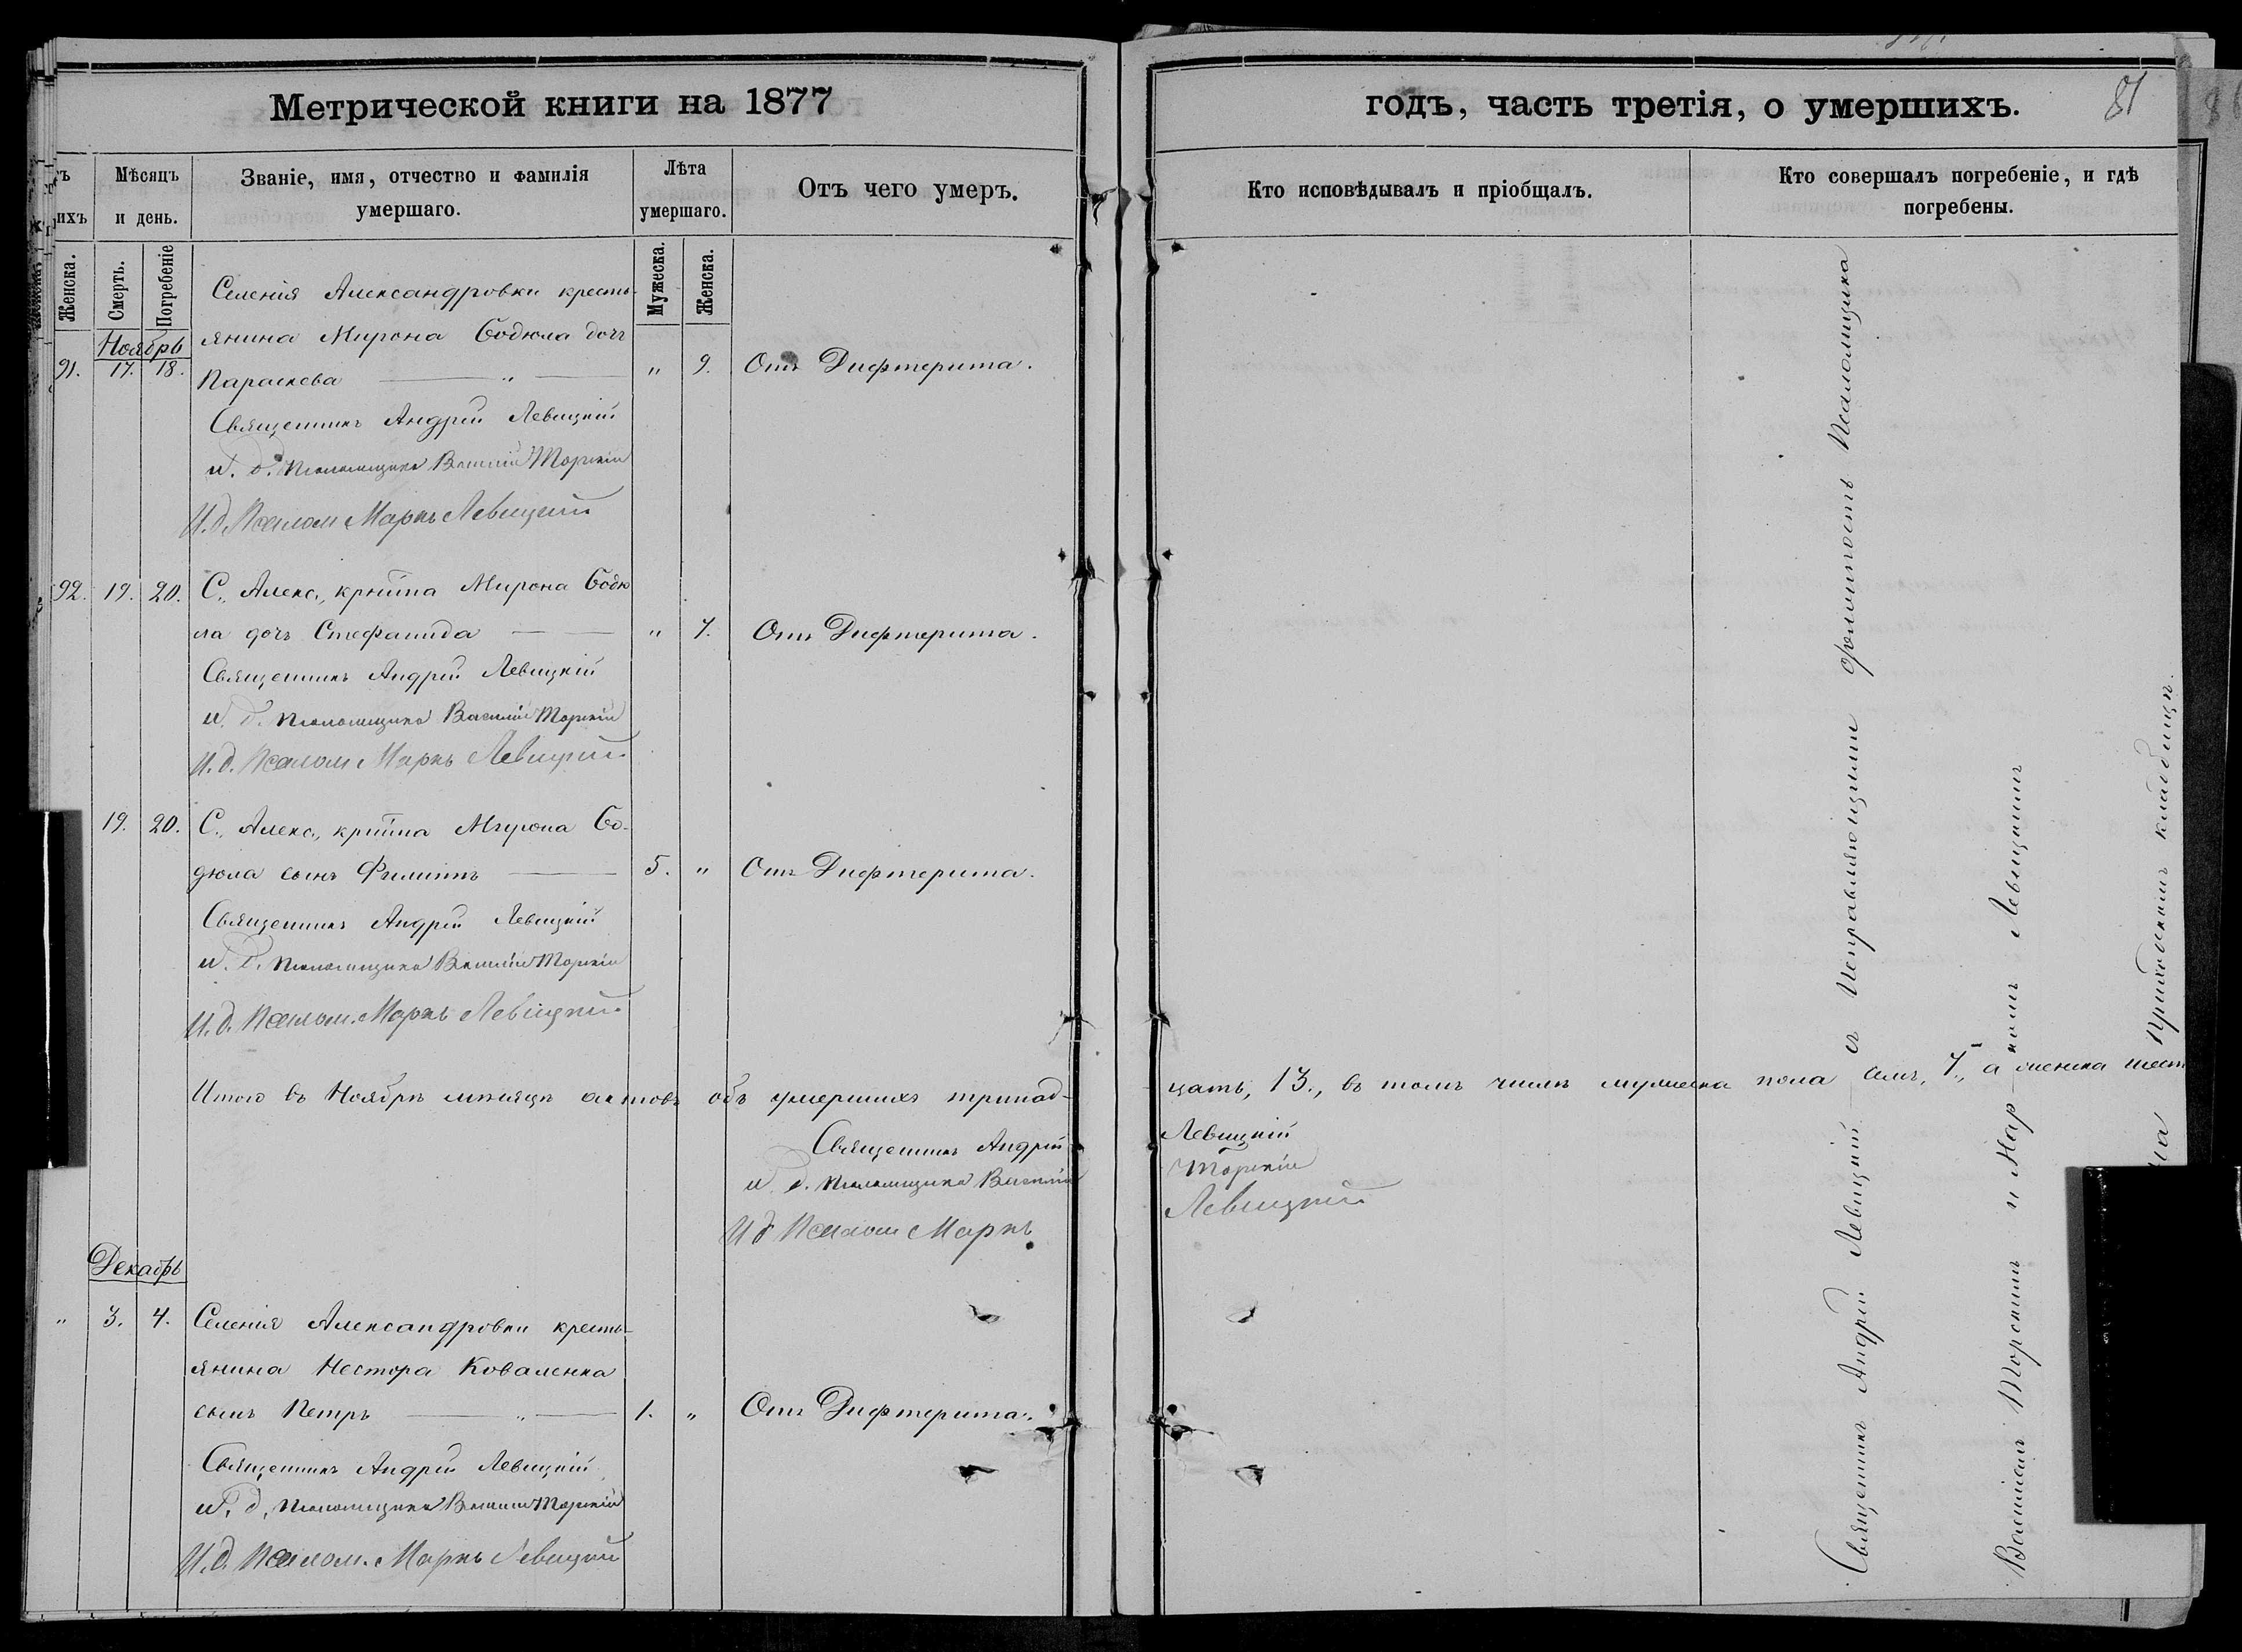 Метрической книги на 1877
годъ, часть третія, о умершихъ.
81
Мѣсяцъ и день.
Званіе, имя, отчество и фамилія умершаго.
Лѣта умершаго.
Отъ чего умеръ.
Кто исповѣдывалъ и пріобщалъ.
Кто совершалъ погребеніе, и гдѣ погребены.
ихъ
Женска.
Смерть.
Погребеніе
Мужеска.
Женска.
Ноябрь
Селенія Александровки кресть-
янина Мирона Бодюла дочь
91. 17. 18. Параскева — „ — „ 9. Отъ Дифтерита.
Священникъ Андрей Левицкій
и. д. псаломщика Василій Торскій
И. д. Псалом Маркъ Левицкій
92. 19. 20. С. Алекс., кр̃тина Мирона Бодю
ла дочь Стефанида — — „ 7. Отъ Дифтерита.
Священникъ Андрей Левицкій
и. д. псаломщика Василій Торскій
И. д. Псалом Маркъ Левицкій
19. 20. С., Алекс., кр̃тина Мирона Бо-
дюла сынъ Филиппъ — 5. „ Отъ Дифтерита.
Священникъ Андрей Левицкій
и. д. псаломщика Василій Торскій
И. д. Псалом. Маркъ Левицкій
Итого въ Ноябрѣ мѣсяцѣ актовъ объ умершихъ тринад-
цать, 13., въ томъ числѣ мужеска пола семь, 7., а женска шест
Священникъ Андрей Левицкій
и. д. псаломщика Василій Торскій
И д Псалом Маркъ Левицкій
Декабрь
„ 3. 4. Селенія Александровки кресть-
янина Нестора Коваленка
сынъ Петръ — „ — 1. „ Отъ Дифтерита.
Священникъ Андрей Левицкій
и. д. псаломщика Василій Торскій
И. д. Псалом. Маркъ Левицкій
Священникъ Андрей Левицкій — съ Исправляющими должность Псаломщика
Василіемъ Торскимъ и Мар-комъ Левицкимъ
на приходскомъ кладбищѣ.